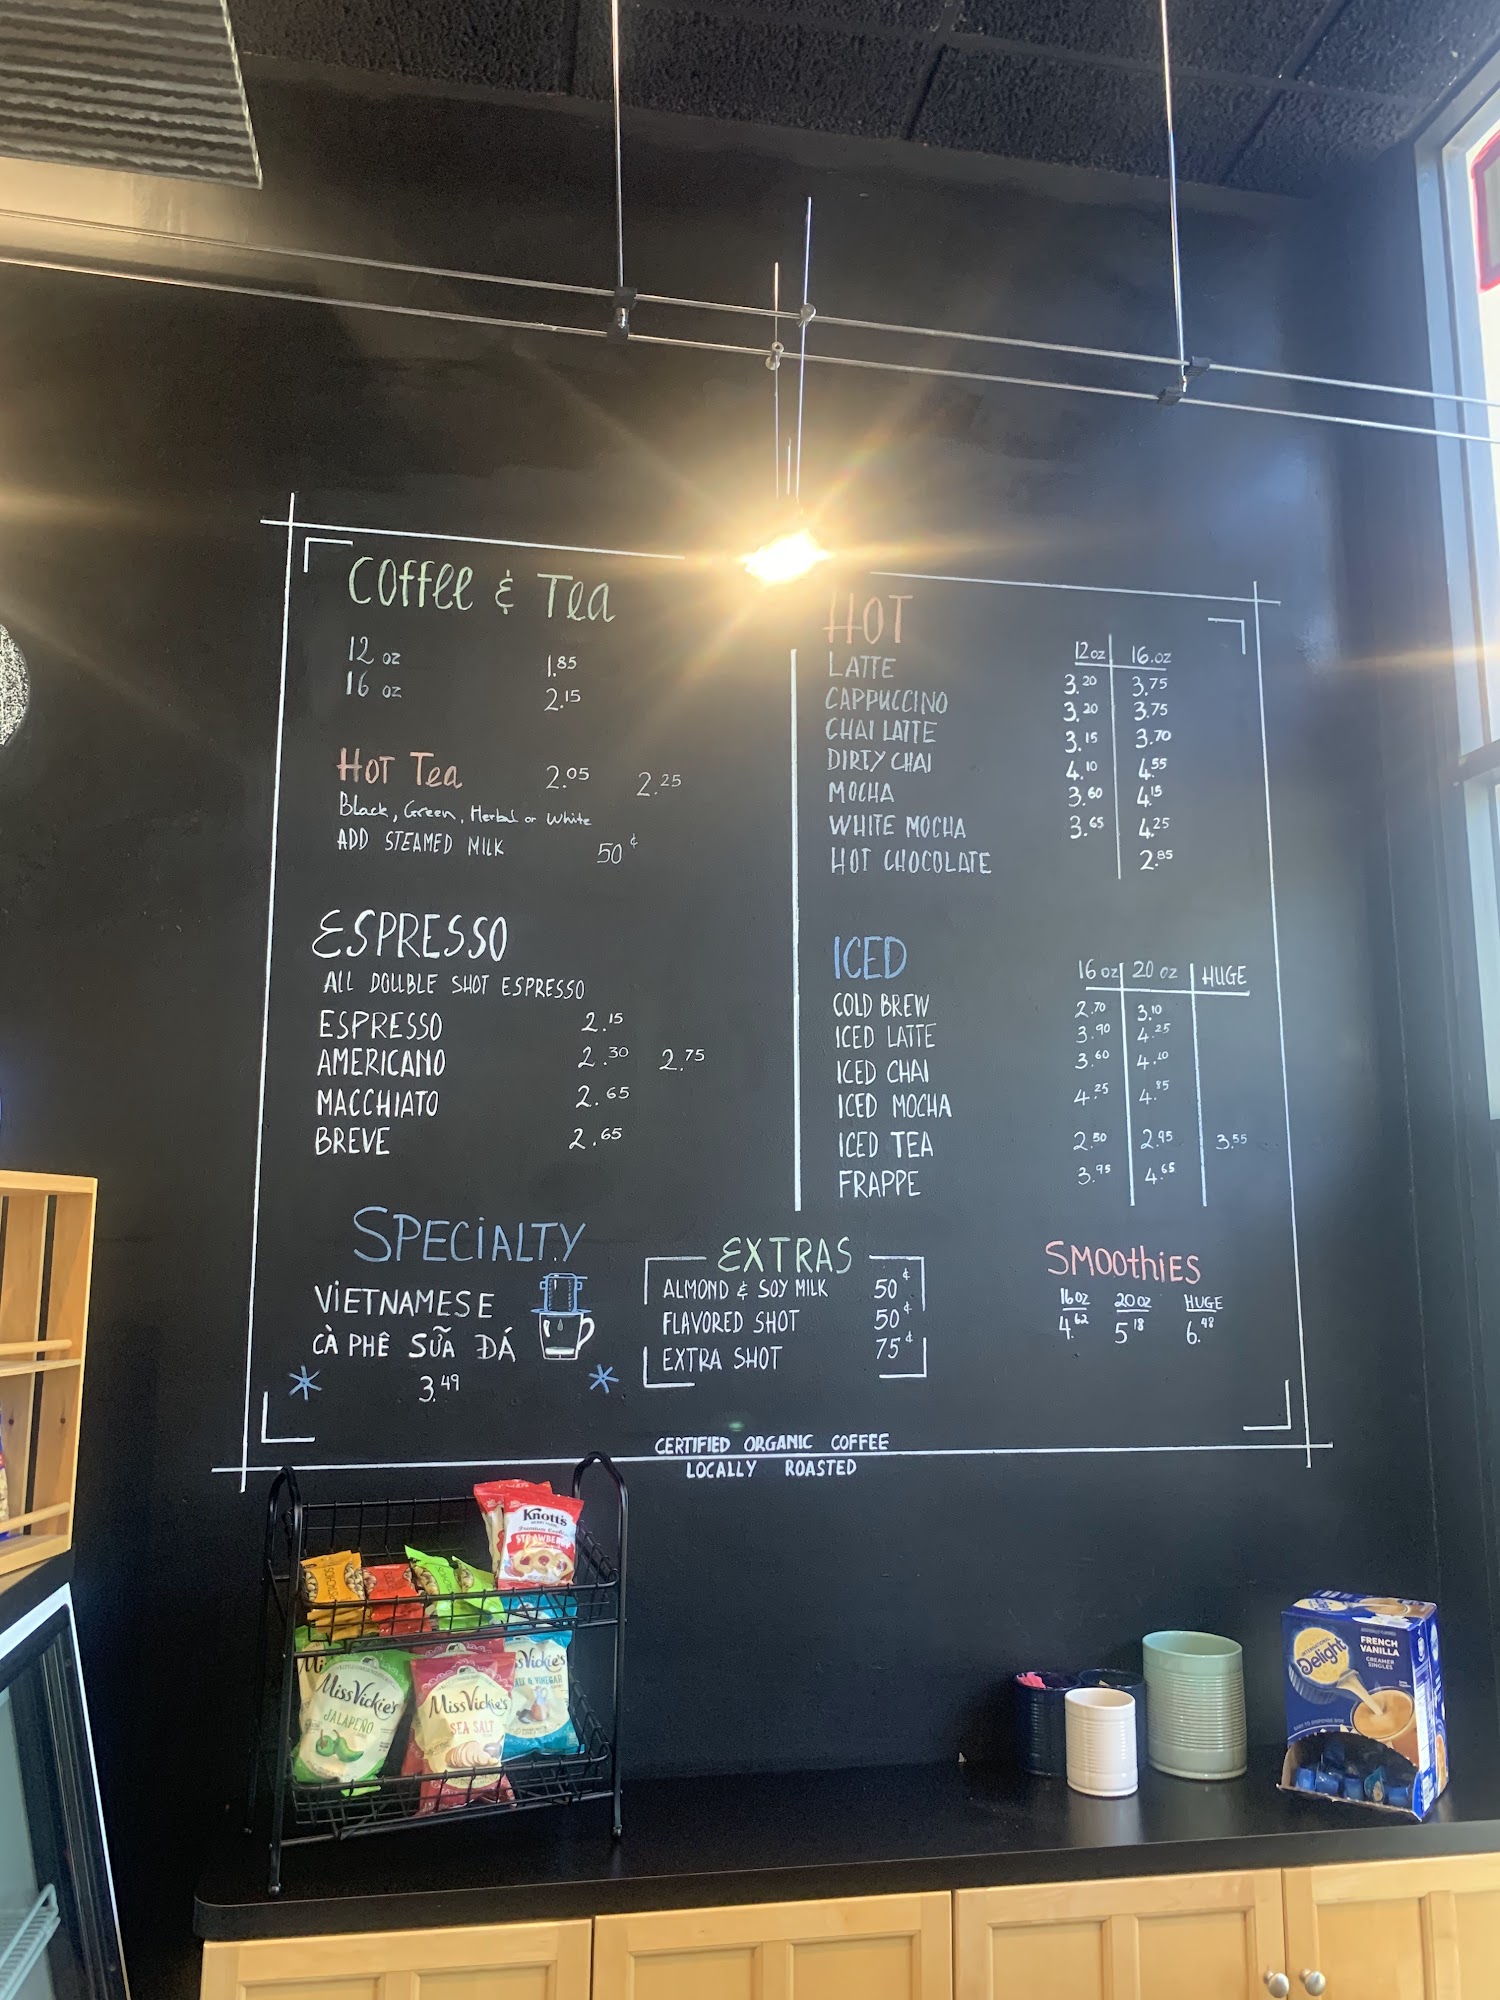 Coffee & Tea
12 oz 1.85
16 oz 2.15
Hot Tea 2.05 2.25
Black, Green, Herbal or White
ADD STEAMED MILK 50¢
ESPRESSO
ALL DOUBLE SHOT ESPRESSO
ESPRESSO 2.15
AMERICANO 2.30 2.75
MACCHIATO 2.65
BREVE 2.65
SPECiALTY
ViETNAMESE
CÀ PHÊ SỮA ĐÁ
3.49
HOT
12oz 16.oz
LATTE 3.20 3.75
CAPPUCCINO 3.20 3.75
CHAI LATTE 3.15 3.70
DIRTY CHAI 4.10 4.55
MOCHA 3.60 4.15
WHITE MOCHA 3.65 4.25
HOT CHOCOLATE 2.85
ICED
16 oz 20 oz HUGE
COLD BREW 2.70 3.10
ICED LATTE 3.90 4.25
ICED CHAI 3.60 4.10
ICED MOCHA 4.25 4.85
ICED TEA 2.50 2.95 3.55
FRAPPE 3.95 4.65
EXTRAS
ALMOND & SOY MILK 50¢
FLAVORED SHOT 50¢
EXTRA SHOT 75¢
SMOOthiES
16oz 20oz HUGE
4.62 5.18 6.48
CERTIFIED ORGANIC COFFEE
LOCALLY ROASTED
Knott's
STRAWBERRY
Miss Vickie's
JALAPEÑO
Miss Vickie's
SEA SALT
Vickie's
& VINEGAR
INTERNATIONAL
Delight
FRENCH
VANILLA
CREAMER
SINGLES